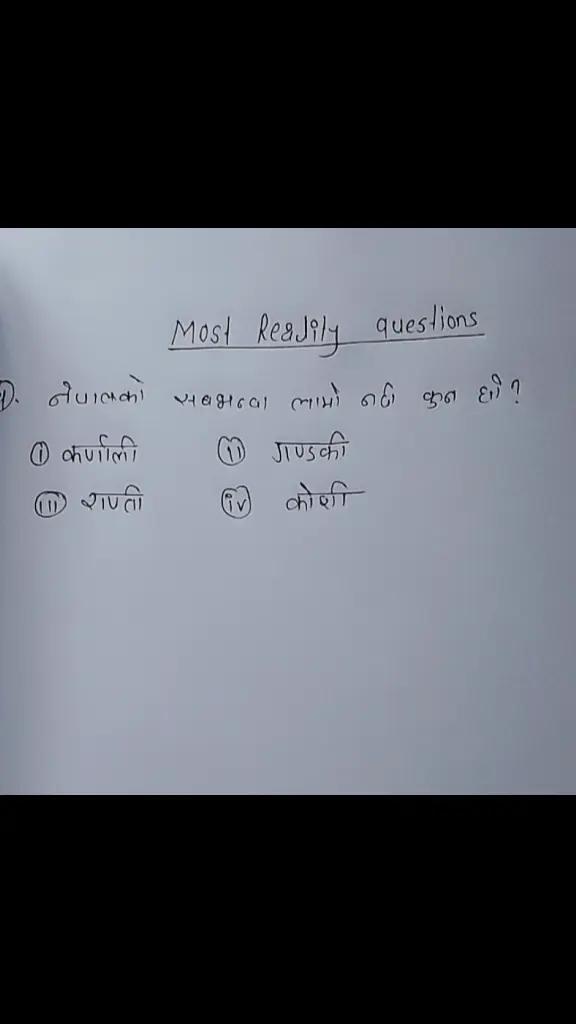 Most Readily questions
१). नेपालको सबभन्दा लामो नदी कुन हो ?
(i) कर्णाली (ii) गण्डकी
(iii) राप्ती (iv) कोशी